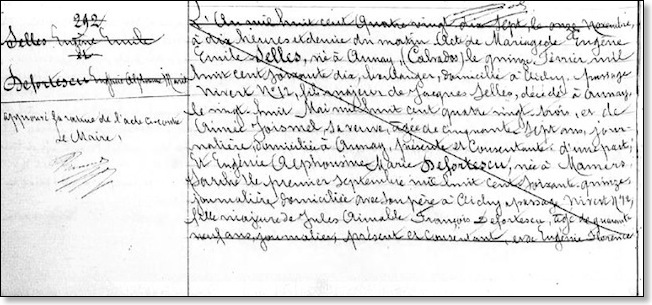 292
Selles Eugène Emile
&
Defortescu Eugénie Alphonsine Marie
approuvé la rature de l'acte ci-contre
Le Maire,
L'An mil huit cent quatre vingt dix sept, le onze Novembre,
à dix heures et demie du matin Acte de Mariage de Eugène
Emile Selles, né à Aunay, (Calvados) le quinze Février mil
huit cent soixante dix, boulanger, domicilié à Clichy, passage
Nivert No 12, fils majeur de Jacques Selles, décédé à Aunay,
le vingt huit Mai mil huit cent quatre vingt trois, et de
Aimée Jouismel, sa veuve, âgée de cinquante sept ans, jour-
nalière, domiciliée à Aunay, présente et Consentante; d'une part;
Et Eugénie Alphonsine Marie Defortescu, née à Mamers
Sarthe le premier septembre mil huit cent soixante quinze
journalière, domiciliée avec son père à Clichy passage Nivert No 12,
fille majeure de Jules Aimable François Defortescu, âgé de quarante
neuf ans, journalier, présent et Consentant, et de Eugénie Florence